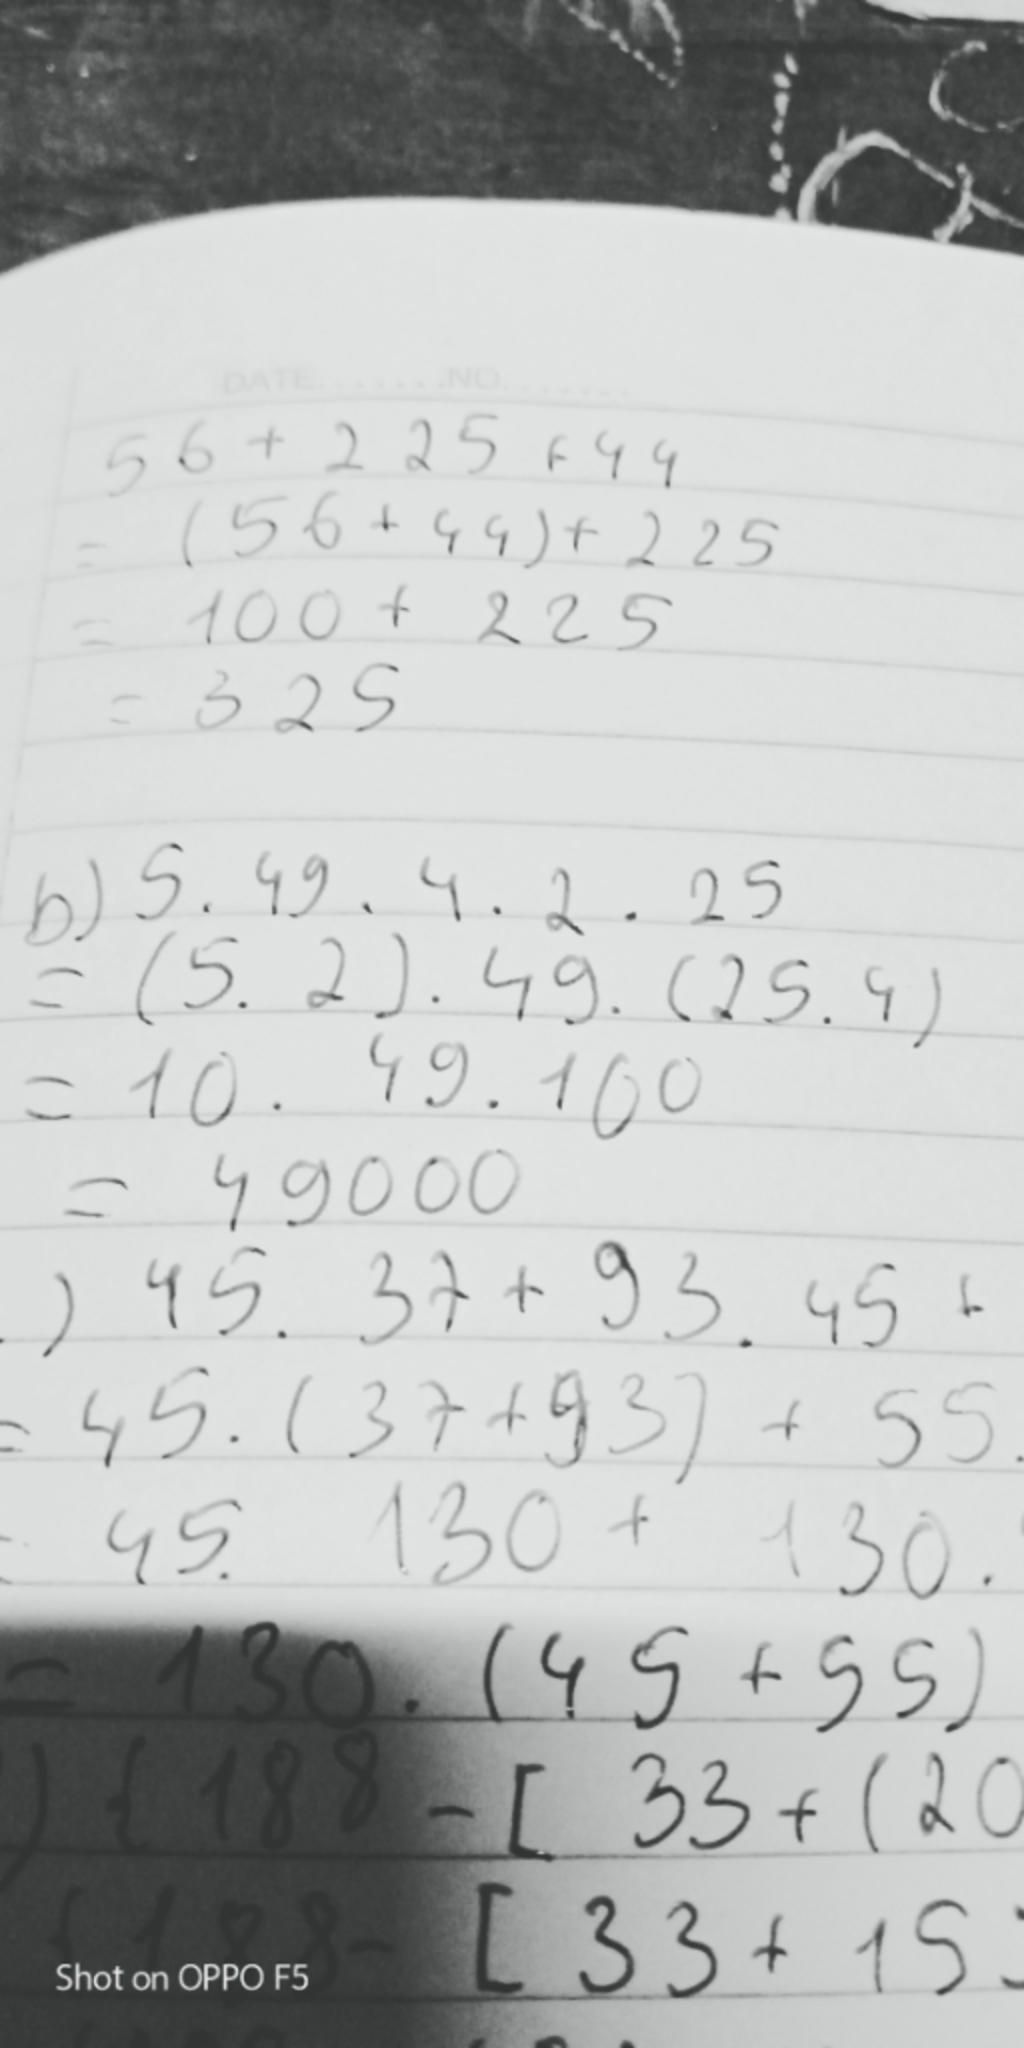 DATE.......NO.......
56 + 225 + 44
= (56 + 44) + 225
= 100 + 225
= 325
b) 5 . 49 . 4 . 2 . 25
= (5 . 2) . 49 . (25 . 4)
= 10 . 49 . 100
= 49000
.) 45 . 37 + 93 . 45 +
= 45 . (37 + 93) + 55 .
= 45 . 130 + 130 .
= 130 . (45 + 55)
) { 188 - [ 33 + (20
{ 188 - [ 33 + 15
Shot on OPPO F5